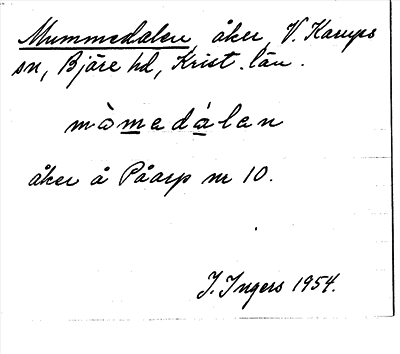 Mummedalen, åker, V. Karups
sn, Bjäre hd, Krist. län.
mòmedálen
åker å Påarp nr 10.
I. Ingers 1954.